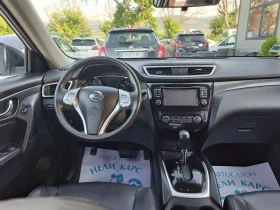 АВТОСАЛОН
НЕЛИ КАРС
АВТОСАЛОН
НЕЛИ КАРС